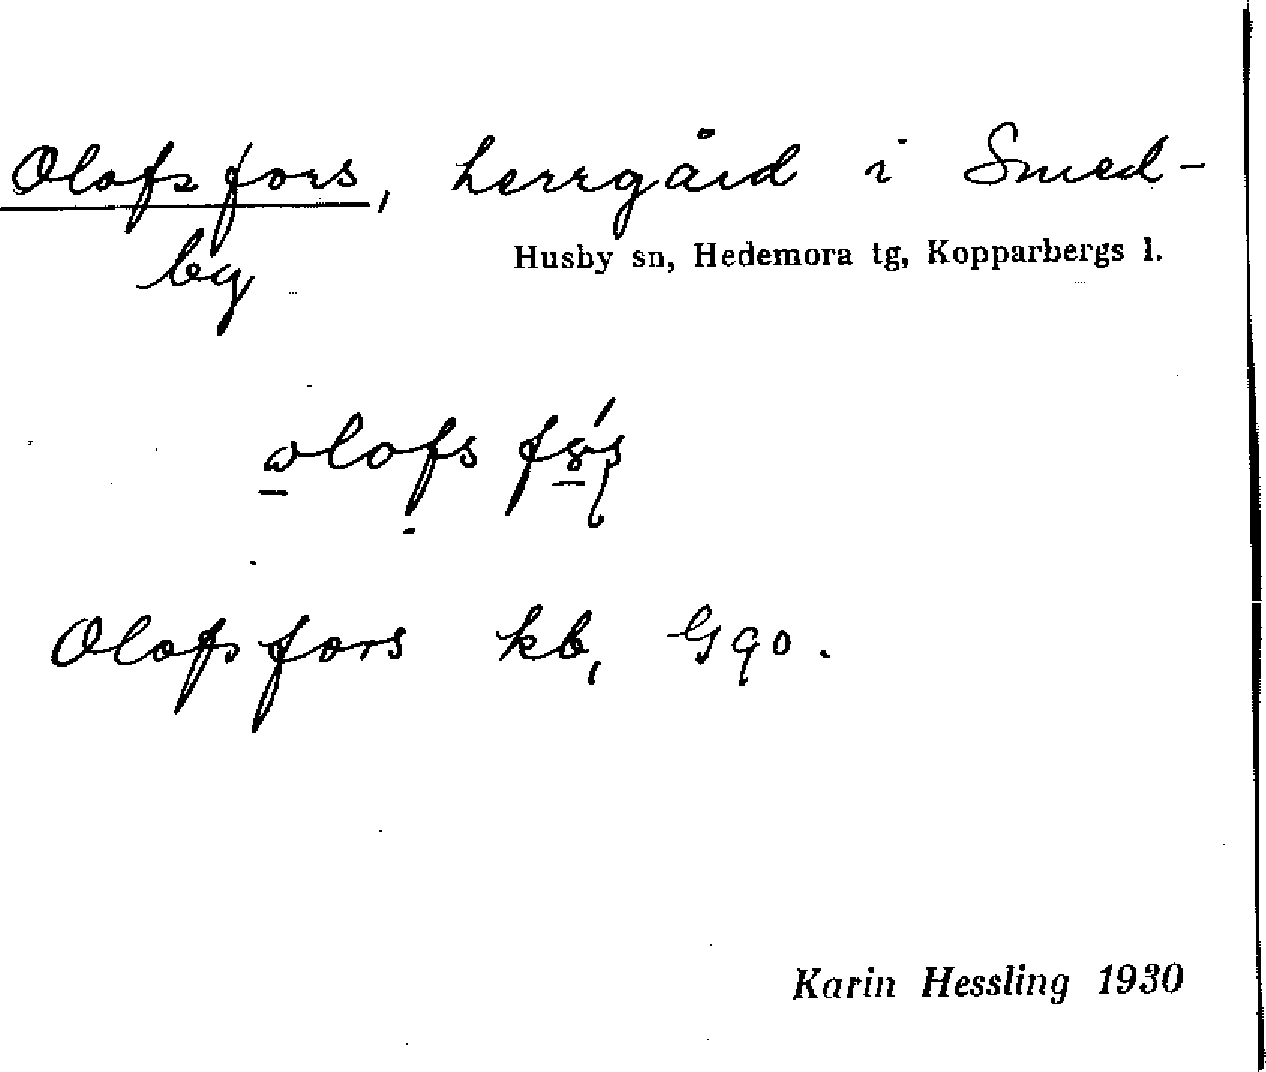 Olofsfors, herrgård i Smed-
by
Husby sn, Hedemora tg, Kopparbergs l.
Olofsfors kb, G90.
Karin Hessling 1930